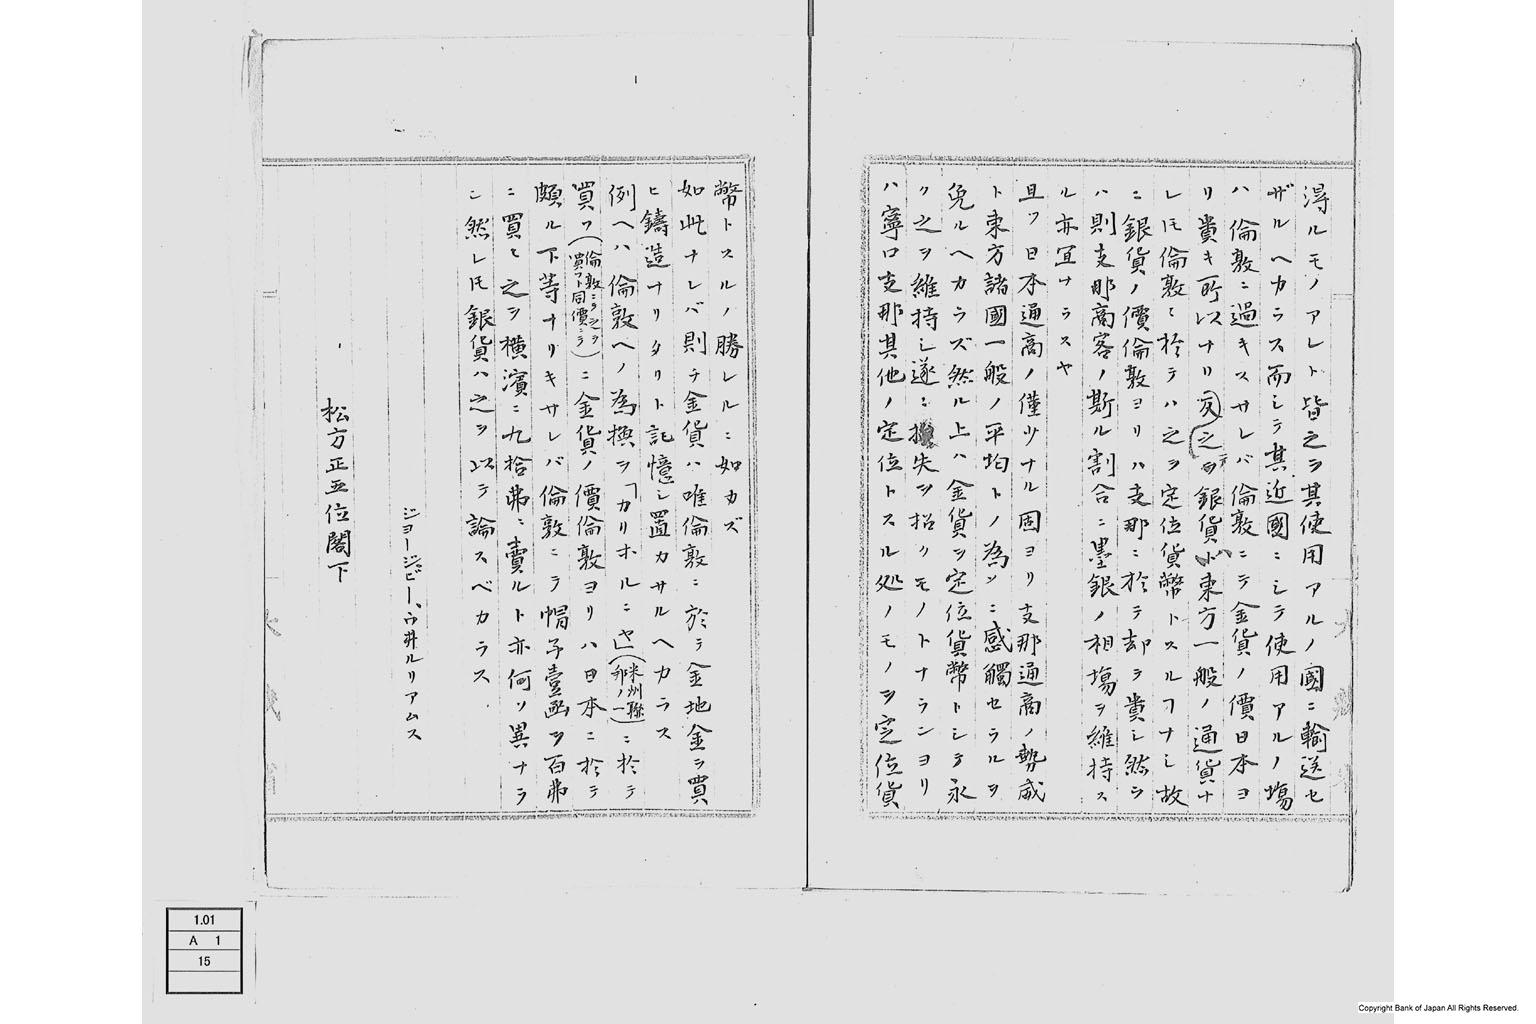 淂ルモノアレト皆之ヲ其使用アルノ國ニ輸送セ
ザルヘカラス而シテ其近國ニシテ使用アルノ塲
ハ倫敦ニ過キスサレバ倫敦ニテ金貨ノ價日本ヨ
リ貴キ所以ナリ反之銀貨ハ東方一般ノ通貨ナ
レ𪜈倫敦ニ於テハ之ヲ定位貨幣トスルヿナシ故
ニ銀貨ノ價倫敦ヨリハ支那ニ於テ却テ貴シ然ラ
ハ則支那商客ノ斯ル割合ニ墨銀ノ相塲ヲ維持ス
ル亦宜ナラスヤ
且ツ日本通商ノ僅少ナル固ヨリ支那通商ノ勢威
ト東方諸國一般ノ平均トノ為メニ感觸セラルヲ
免ルヘカラズ然ル上ハ金貨ヲ定位貨幣トシテ永
ク之ヲ維持シ遂ニ損失ヲ招クモノトナランヨリ
ハ寧ロ支那其他ノ定位トスル処ノモノヲ定位貨
幣トスルノ勝レルニ如カズ
如此ナレバ則チ金貨ハ唯倫敦ニ於テ金地金ヲ買
ヒ鑄造ナリタリト記憶シ置カサルヘカラス
例ヘハ倫敦ヘノ為換ヲ「カリホルニヤ」(米州聯邦ノ一)ニ於テ
買フ(倫敦ニテ之ヲ買フト同價ニテ)ニ金貨ノ價倫敦ヨリハ日本ニ於テ
頗ル下等ナリキサレバ倫敦ニテ帽子壹函ヲ百弗
ニ買ヒ之ヲ横濱ニ九拾弗ニ賣ルト亦何ソ異ナラ
ン然レ𪜈銀貨ハ之ヲ以テ論スベカラス
ジヨージ、ビー、ウ井ルリアムス
松方正五位閣下
1.01
A 1
15
Copyright Bank of Japan All Rights Reserved.